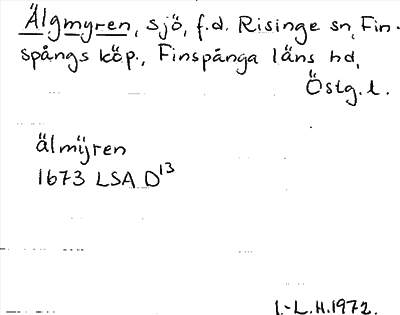 Älgmyren, sjö, f.d. Risinge sn, Fin-
spångs köp., Finspånga läns hd,
Östg. l.
älmÿren
1673 LSA D13
I.-L.H. 1972.